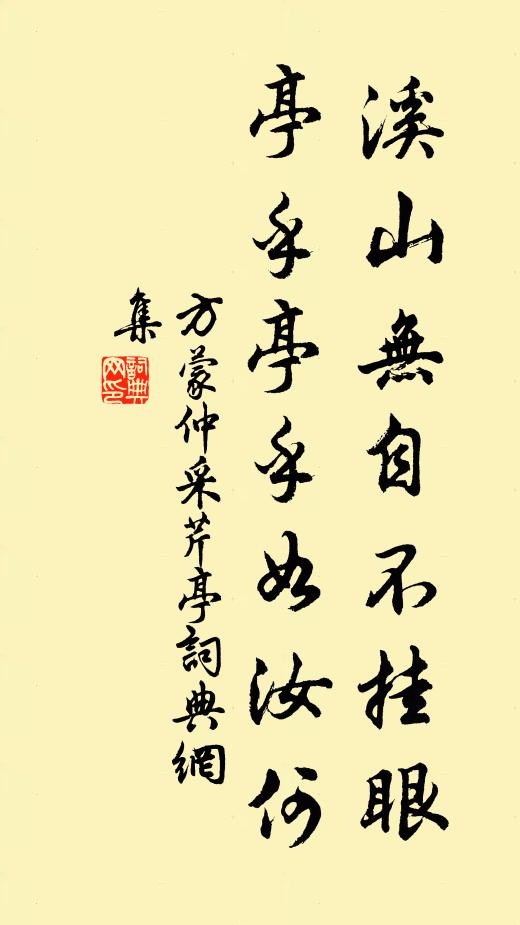 溪山無自不挂眼
亭乎亭乎如汝何
方蒙仲采芹亭詞典網
集
詞典網印